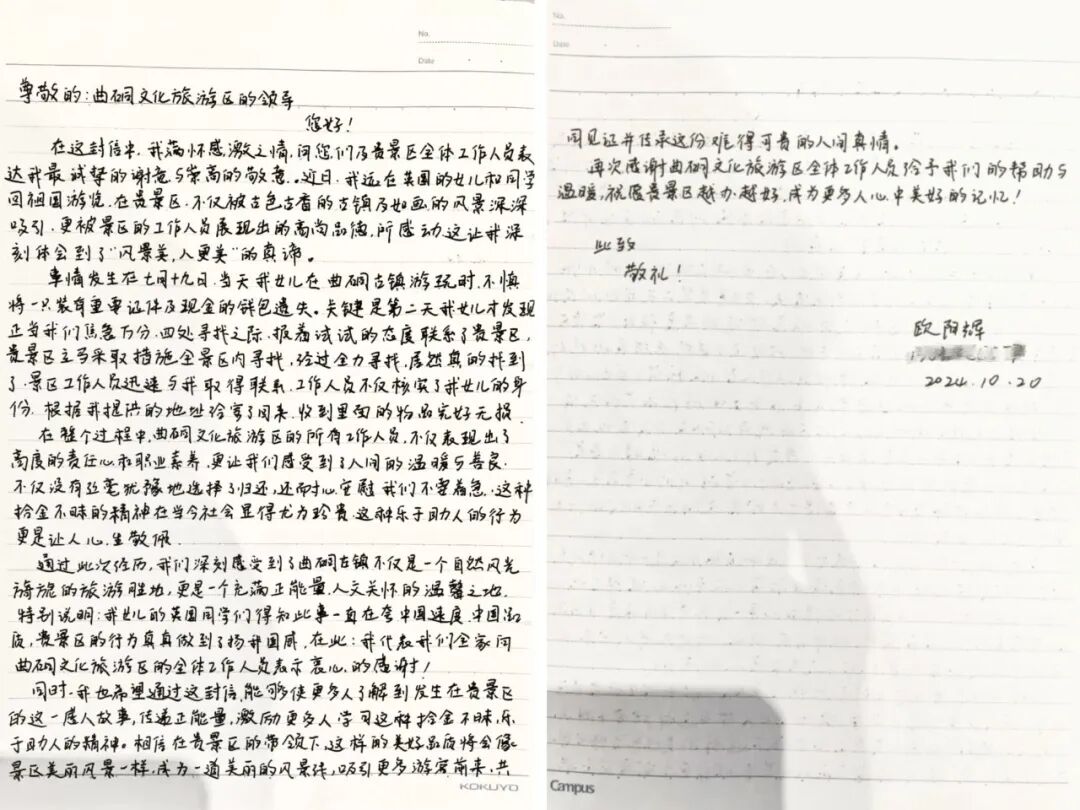 No.
Date
尊敬的：曲硐文化旅游区的领导
您好！
在这封信中，我满怀感激之情，向您们及贵景区全体工作人员表
达我最诚挚的谢意与崇高的敬意。近日，我远在英国的女儿和同学
回祖国游览，在贵景区，不仅被古色古香的古镇及如画的风景深深
吸引，更被景区的工作人员展现出的高尚品德，所感动，这让我深
刻体会到了“风景美，人更美”的真谛。
事情发生在七月十九日，当天我女儿在曲硐古镇游玩时，不慎
将一只装有重要证件及现金的钱包遗失。关键是第二天我女儿才发现
正当我们焦急万分，四处寻找之际，报着试试的态度联系了贵景区，
贵景区立马采取措施全景区内寻找，经过全力寻找，居然真的找到
了，景区工作人员迅速与我取得联系，工作人员不仅核实了我女儿的身
份，根据我提供的地址给寄了回来，收到里面的物品完好无损
在整个过程中，曲硐文化旅游区的所有工作人员，不仅表现出了
高度的责任心和职业素养，更让我们感受到了人间的温暖与善良.
不仅没有丝毫犹豫地选择了归还，还耐心安慰我们不要着急，这种
拾金不昧的精神在当今社会显得尤为珍贵，这种乐于助人的行为
更是让人心生敬佩.
通过此次经历，我们深刻感受到了曲硐古镇不仅是一个自然风光
旖旎的旅游胜地，更是一个充满正能量，人文关怀的温馨之地.
特别说明：我女儿的英国同学们得知此事一直在夸中国速度，中国品
质，贵景区的行为真真做到了扬我国威，在此：我代表我们全家向
曲硐文化旅游区的全体工作人员表示衷心的感谢！
同时，我也希望通过这封信，能够使更多人了解到发生在贵景区
的这一感人故事，传递正能量，激励更多人学习这种拾金不昧，乐
于助人的精神。相信在贵景区的带领下，这样的美好品质将会像
景区美丽风景一样，成为一道美丽的风景线，吸引更多游客前来，共
KOKUYO
No.
Date
同见证并传承这份难得可贵的人间真情。
再次感谢曲硐文化旅游区全体工作人员给予我们的帮助与
温暖，祝愿贵景区越办越好，成为更多人心中美好的记忆！
此致
敬礼！
欧阳辉
2024.10.20
Campus